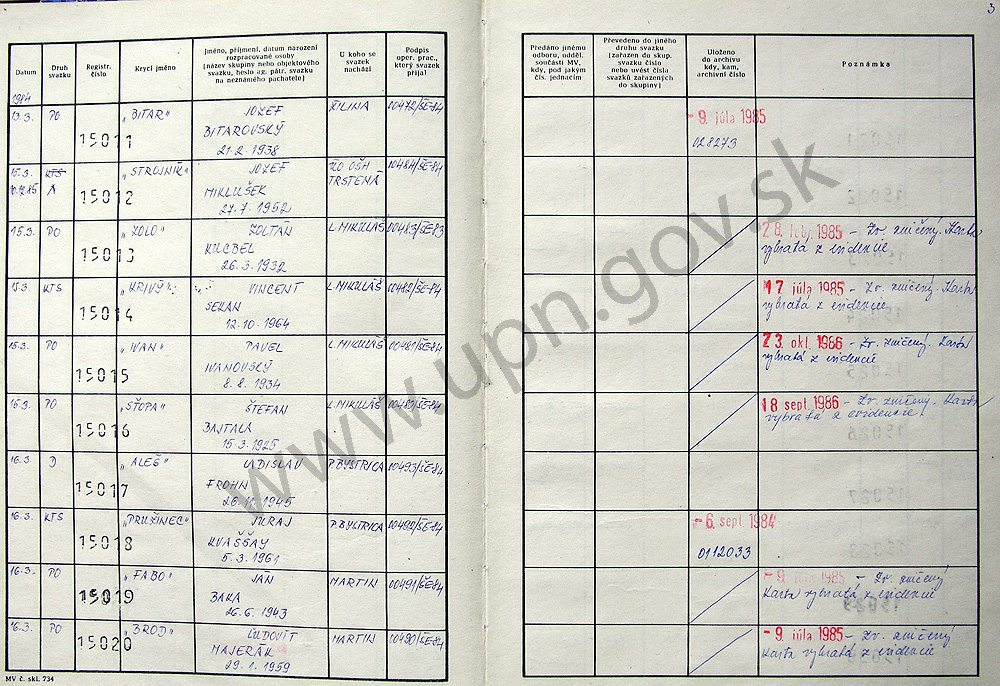 3
Datum
Druh svazku
Registr. číslo
Krycí jméno
Jméno, příjmení, datum narození
rozpracované osoby
(název skupiny nebo objektového
svazku, heslo ag. pátr. svazku
na neznámého pachatele)
U koho se
svazek
nachází
Podpis
oper. prac.,
který svazek
přijal
Předáno jinému
odboru, odděl.
součásti MV,
kdy, pod jakým
čís. jednacím
Převedeno do jiného
druhu svazku
(zařazen do skup.
svazku číslo
nebo uvést čísla
svazků zařazených
do skupiny)
Uloženo
do archivu
kdy, kam,
archivní číslo
Poznámka
1984
13.3. PO 15011 „BITAR" JOZEF ŽILINA 00472/ŠE-84
BITAROVSKÝ
21.2.1938
- 9. júla 1985
028273
15.3. KTS 15012 „STROJNÍK" JOZEF ŽO OŠH 00484/ŠE-84
A MIKLUŠEK TRSTENÁ
27.7.1952
15.3. PO 15013 „ZOLO" ZOLTÁN L.MIKULÁŠ 00483/ŠE-83
26.3.1932
28. feb. 1985 - Zv. zničený. Karta
vybratá z evidencie
15.3. KTS 15014 „KRIVÝ" VINCENT L.MIKULÁŠ 00482/ŠE-84
SEKAN
12.10.1964
17 júla 1985 - Zv. zničený. Karta
vybratá z evidencie
15.3. PO 15015 „IVAN" PAVEL L.MIKULÁŠ 00481/ŠE-84
IVANOVSKÝ
8.8.1934
23. okt. 1986 - Zv. zničený. Karta
vybratá z evidencie
15.3. PO 15016 „STOPA" ŠTEFAN L.MIKULÁŠ 00480/ŠE-84
BAJTALA
15.3.1925
18 sept. 1986 - Zv. zničený. Karta
vybratá z evidencie.
16.3. D 15017 „ALEŠ" LADISLAV P.BYSTRICA 00493/ŠE-84
FROHN
26.11.1945
16.3. KTS 15018 „PRUŽINEC" JURAJ P.BYSTRICA 00492/ŠE-84
KVAŠŠAY
5.3.1961
- 6. sept. 1984
0112033
16.3. PO 15019 „FABO" JÁN MARTIN 00491/ŠE-84
BAKA
26.6.1943
- 9. júla 1985 - Zv. zničený
Karta vybratá z evidencie
16.3. PO 15020 „BROD" ĽUDOVÍT MARTIN 00490/ŠE-84
MAJERÁK
29.1.1959
- 9. júla 1985 - Zv. zničený
Karta vybratá z evidencie
MV č. skl. 734
www.upn.gov.sk